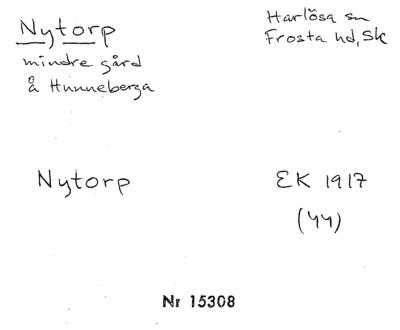 Nytorp
mindre gård
å Hunneberga
Harlösa sn
Frosta hd, Sk
Nytorp
EK 1917
(44)
Nr 15308